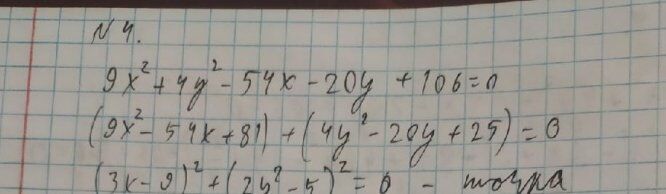 N 4.
9x² + 4y² - 54x - 20y + 106 = 0
(9x² - 54x + 81) + (4y² - 20y + 25) = 0
(3x - 9)² + (2y² - 5)² = 0 - точка